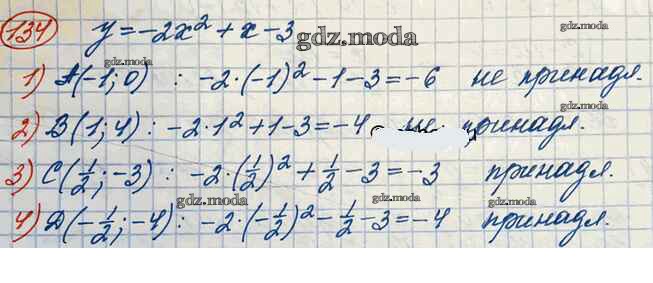 134 y = -2x² + x - 3 gdz.moda
gdz.moda
1) A(-1; 0) : -2·(-1)² - 1 - 3 = -6 не принадл.
gdz.moda
2) B(1; 4) : -2·1² + 1 - 3 = -4 не принадл.
gdz.moda
3) C(1/2; -3) : -2·(1/2)² + 1/2 - 3 = -3 принадл.
gdz.moda gdz.moda
4) D(-1/2; -4) : -2·(-1/2)² - 1/2 - 3 = -4 принадл.
gdz.moda